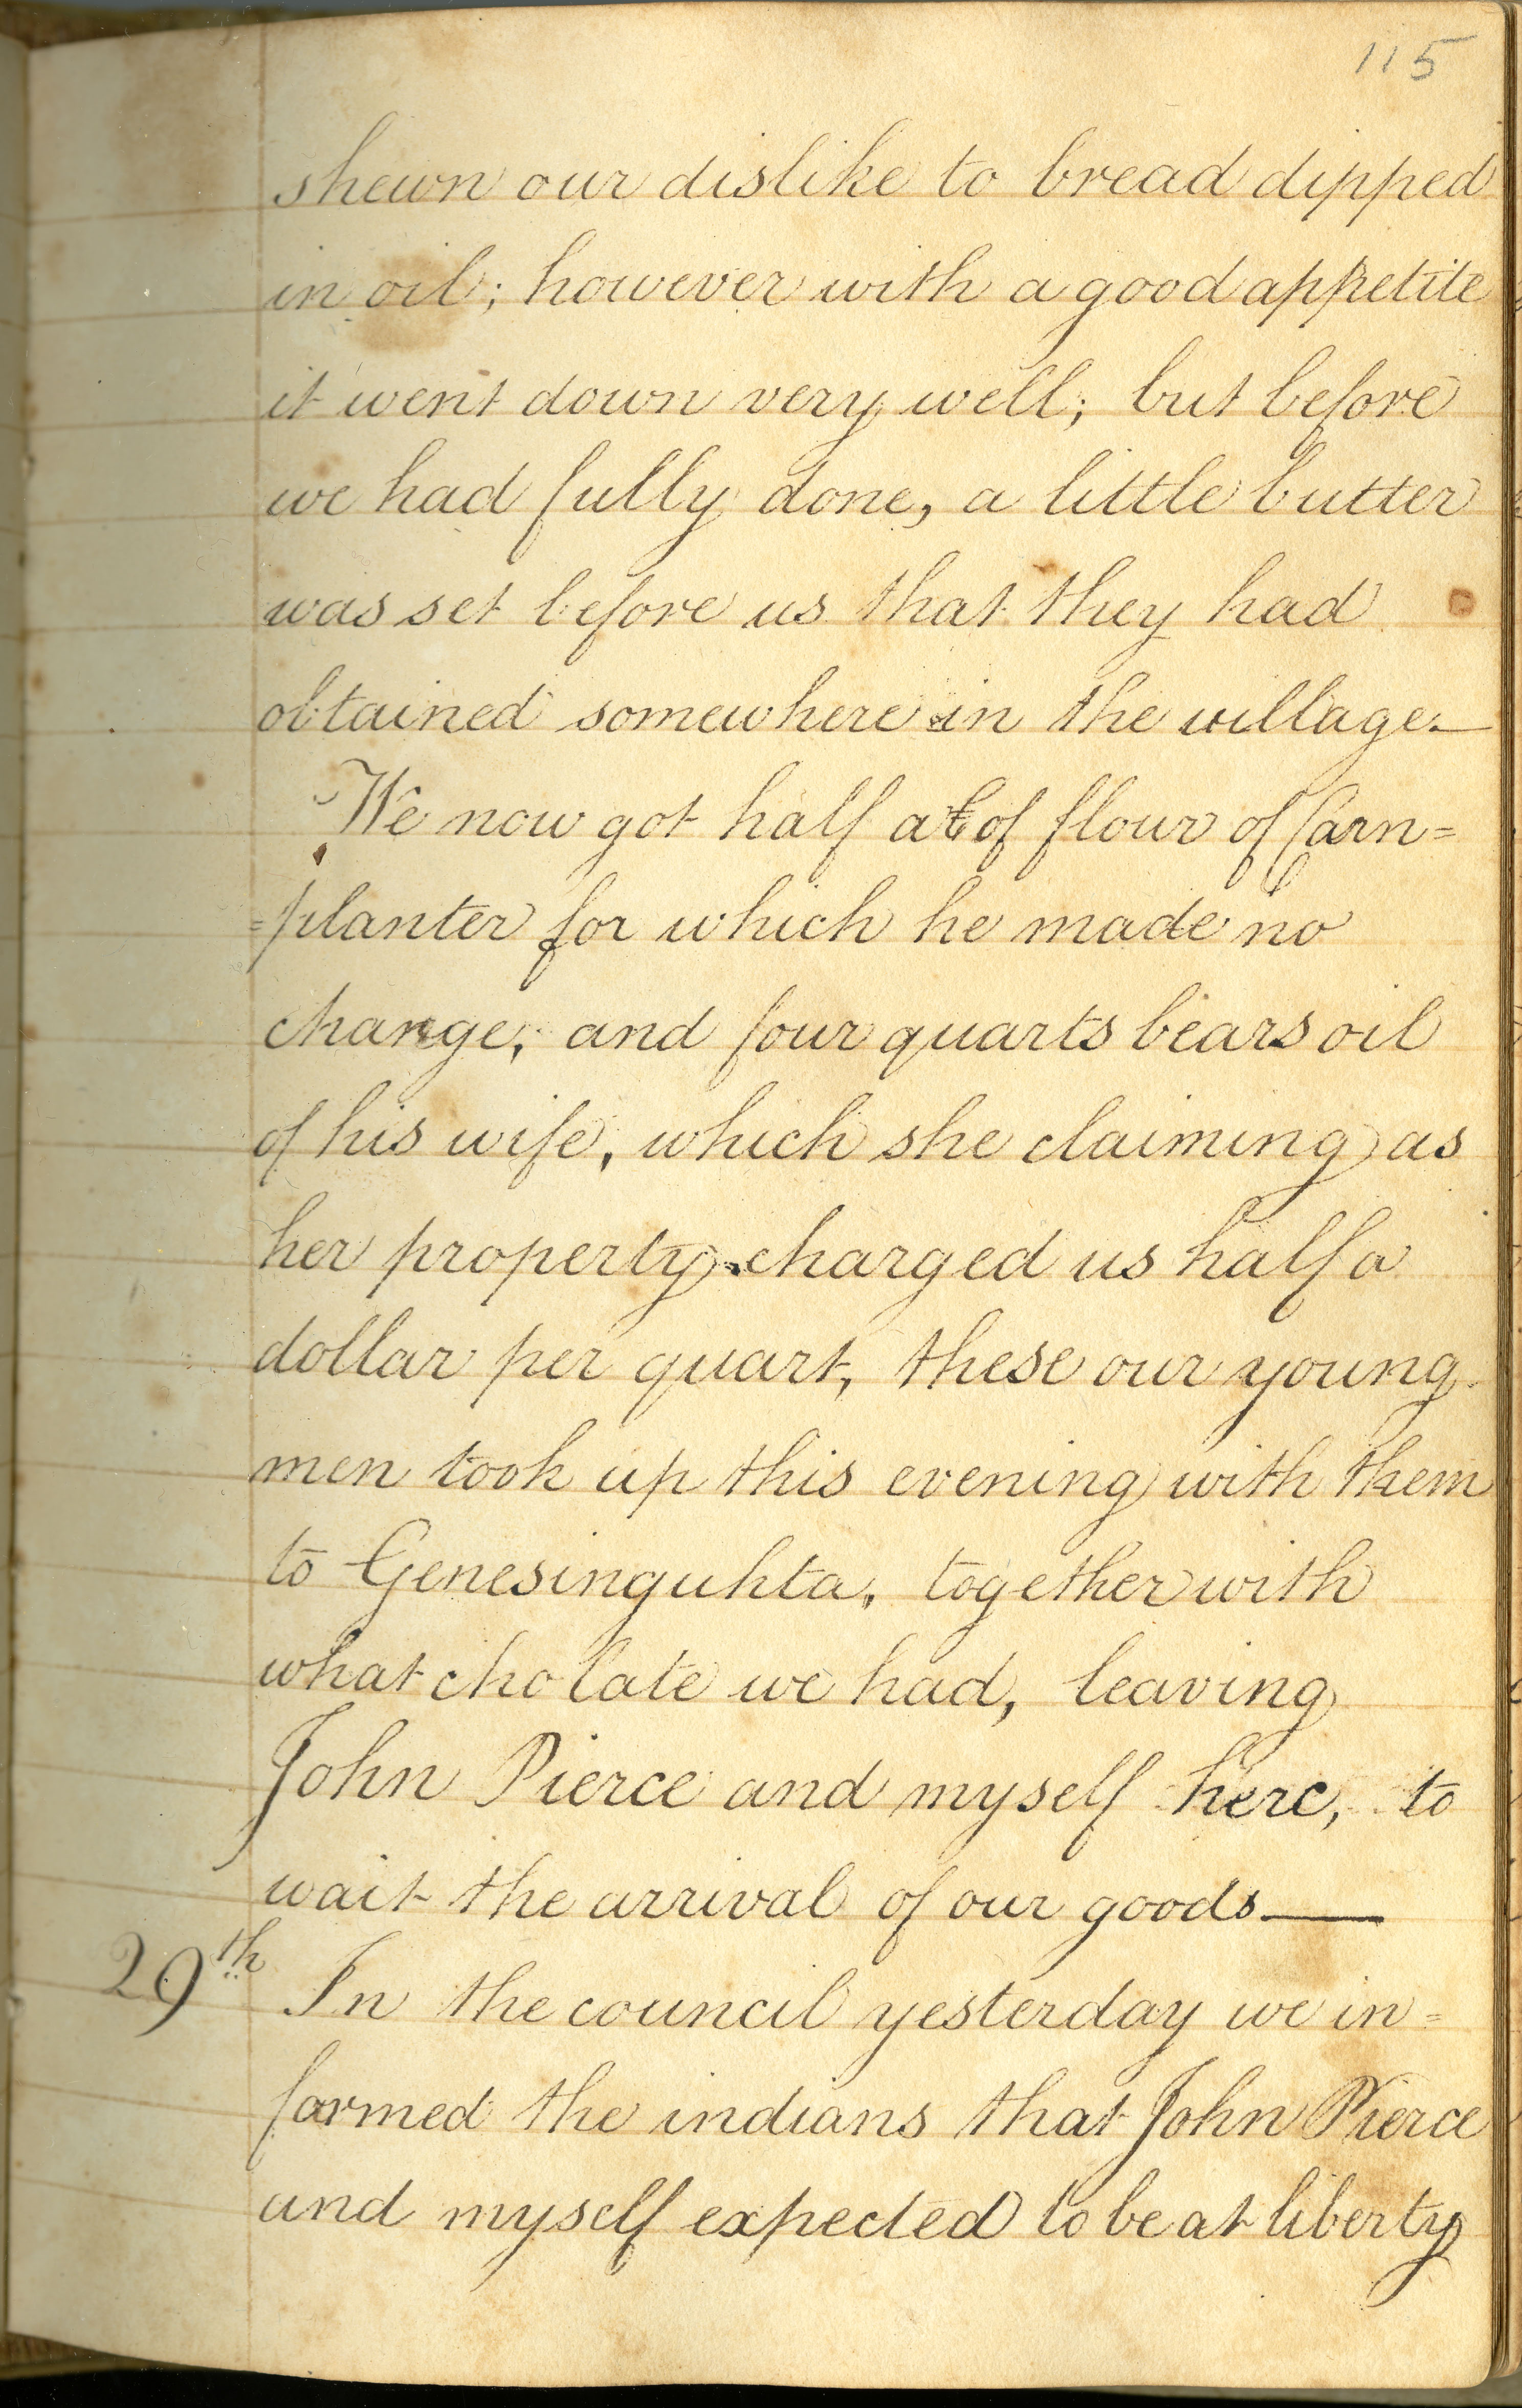 115
shewn our dislike to bread dipped
in oil; however with a good appetite
it went down very well; but before
we had fully done, a little butter
was set before us that they had
obtained somewhere in the village.—
We now got half a C of flour of Corn=
=planter for which he made no
charge; and four quarts bears oil
of his wife, which she claiming as
her property charged us half a
dollar per quart, these our young
men took up this evening with them
to Genesinguhta, together with
what cholate we had, leaving
John Pierce and myself here, to
wait the arrival of our goods.—
29th In the council yesterday we in=
formed the indians that John Pierce
and myself expected to be at liberty